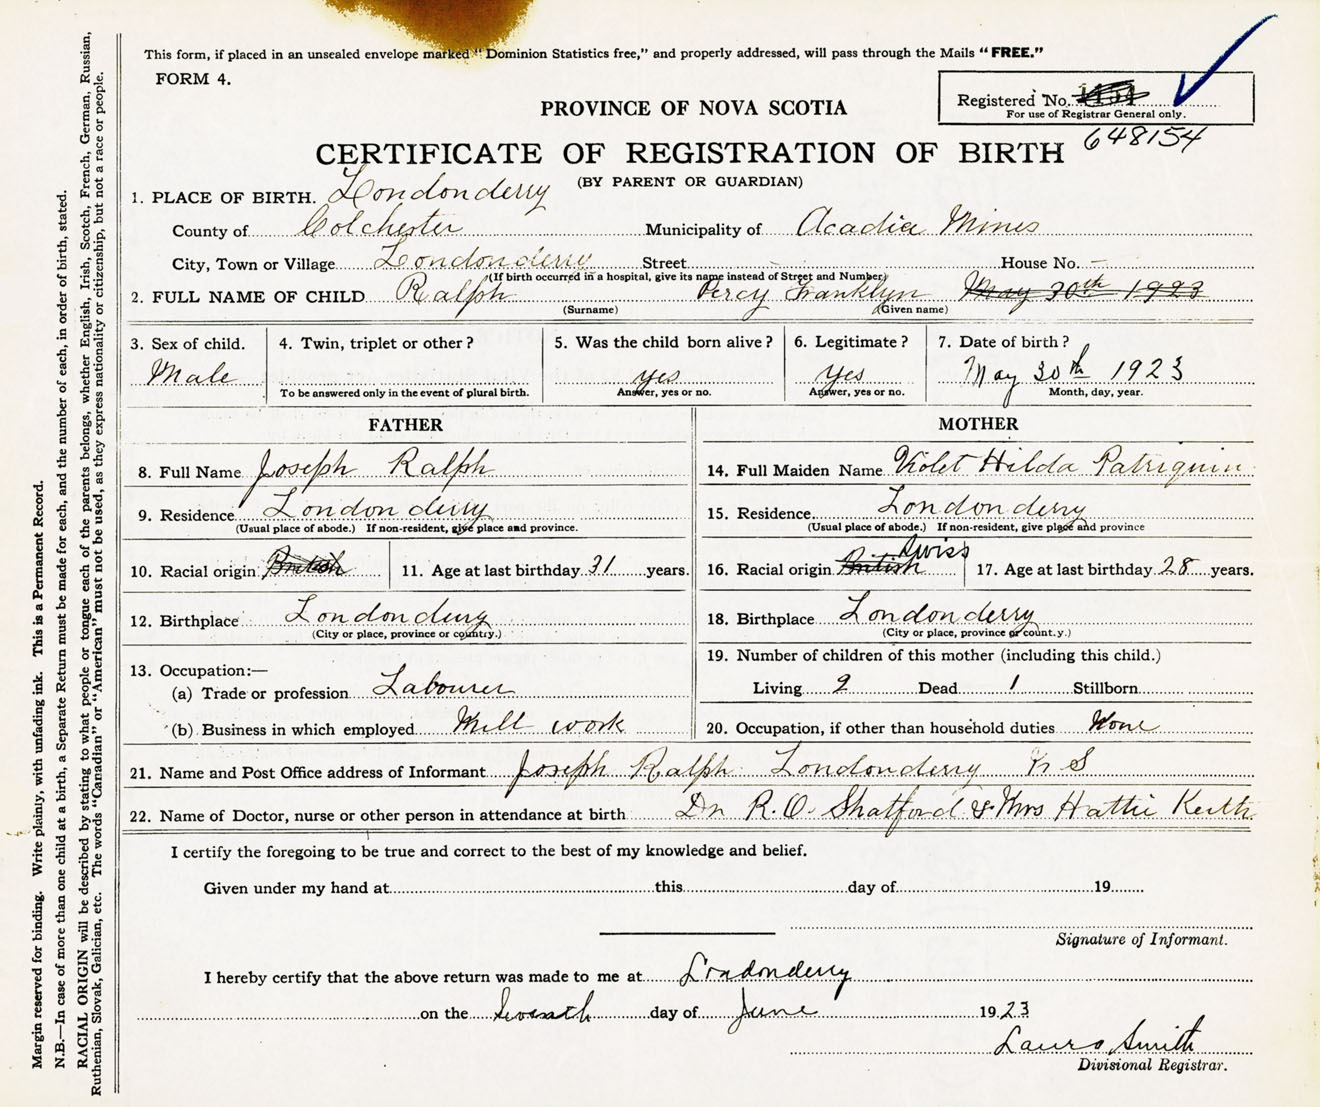 This form, if placed in an unsealed envelope marked "Dominion Statistics free," and properly addressed, will pass through the Mails "FREE."
FORM 4.
PROVINCE OF NOVA SCOTIA
Registered No.
For use of Registrar General only.
648154
CERTIFICATE OF REGISTRATION OF BIRTH
(BY PARENT OR GUARDIAN)
1. PLACE OF BIRTH. Londonderry
County of Colchester Municipality of Acadia Mines
City, Town or Village Londonderry Street House No. —
(If birth occurred in a hospital, give its name instead of Street and Number)
2. FULL NAME OF CHILD Ralph Percy Franklyn May 30th 1923
(Surname) (Given name)
3. Sex of child. 4. Twin, triplet or other? 5. Was the child born alive? 6. Legitimate? 7. Date of birth?
Male yes Yes May 30th 1923
To be answered only in the event of plural birth. Answer, yes or no. Answer, yes or no. Month, day, year.
FATHER MOTHER
8. Full Name Joseph Ralph 14. Full Maiden Name Violet Hilda Patriquin
9. Residence Londonderry 15. Residence Londonderry
(Usual place of abode.) If non-resident, give place and province. (Usual place of abode.) If non-resident, give place and province
10. Racial origin British 11. Age at last birthday 31 years. 16. Racial origin British Swiss 17. Age at last birthday 28 years.
12. Birthplace Londonderry 18. Birthplace Londonderry
(City or place, province or country.) (City or place, province or count.y.)
13. Occupation:— 19. Number of children of this mother (including this child.)
(a) Trade or profession Labourer Living 2 Dead 1 Stillborn
(b) Business in which employed Mill work 20. Occupation, if other than household duties None
21. Name and Post Office address of Informant Joseph Ralph Londonderry N S
22. Name of Doctor, nurse or other person in attendance at birth Dr R. O. Shatford & Mrs Hattie Keith
I certify the foregoing to be true and correct to the best of my knowledge and belief.
Given under my hand at this day of 19
Signature of Informant.
I hereby certify that the above return was made to me at Londonderry
on the Seventh day of June 1923
Laura Smith
Divisional Registrar.
Margin reserved for binding. Write plainly, with unfading ink. This is a Permanent Record.
N.B.—In case of more than one child at a birth, a Separate Return must be made for each, and the number of each, in order of birth, stated.
RACIAL ORIGIN will be described by stating to what people or tongue each of the parents belongs, whether English, Irish, Scotch, French, German, Russian,
Ruthenian, Slovak, Galician, etc. The words "Canadian" or "American" must not be used, as they express nationality or citizenship, but not a race or people.